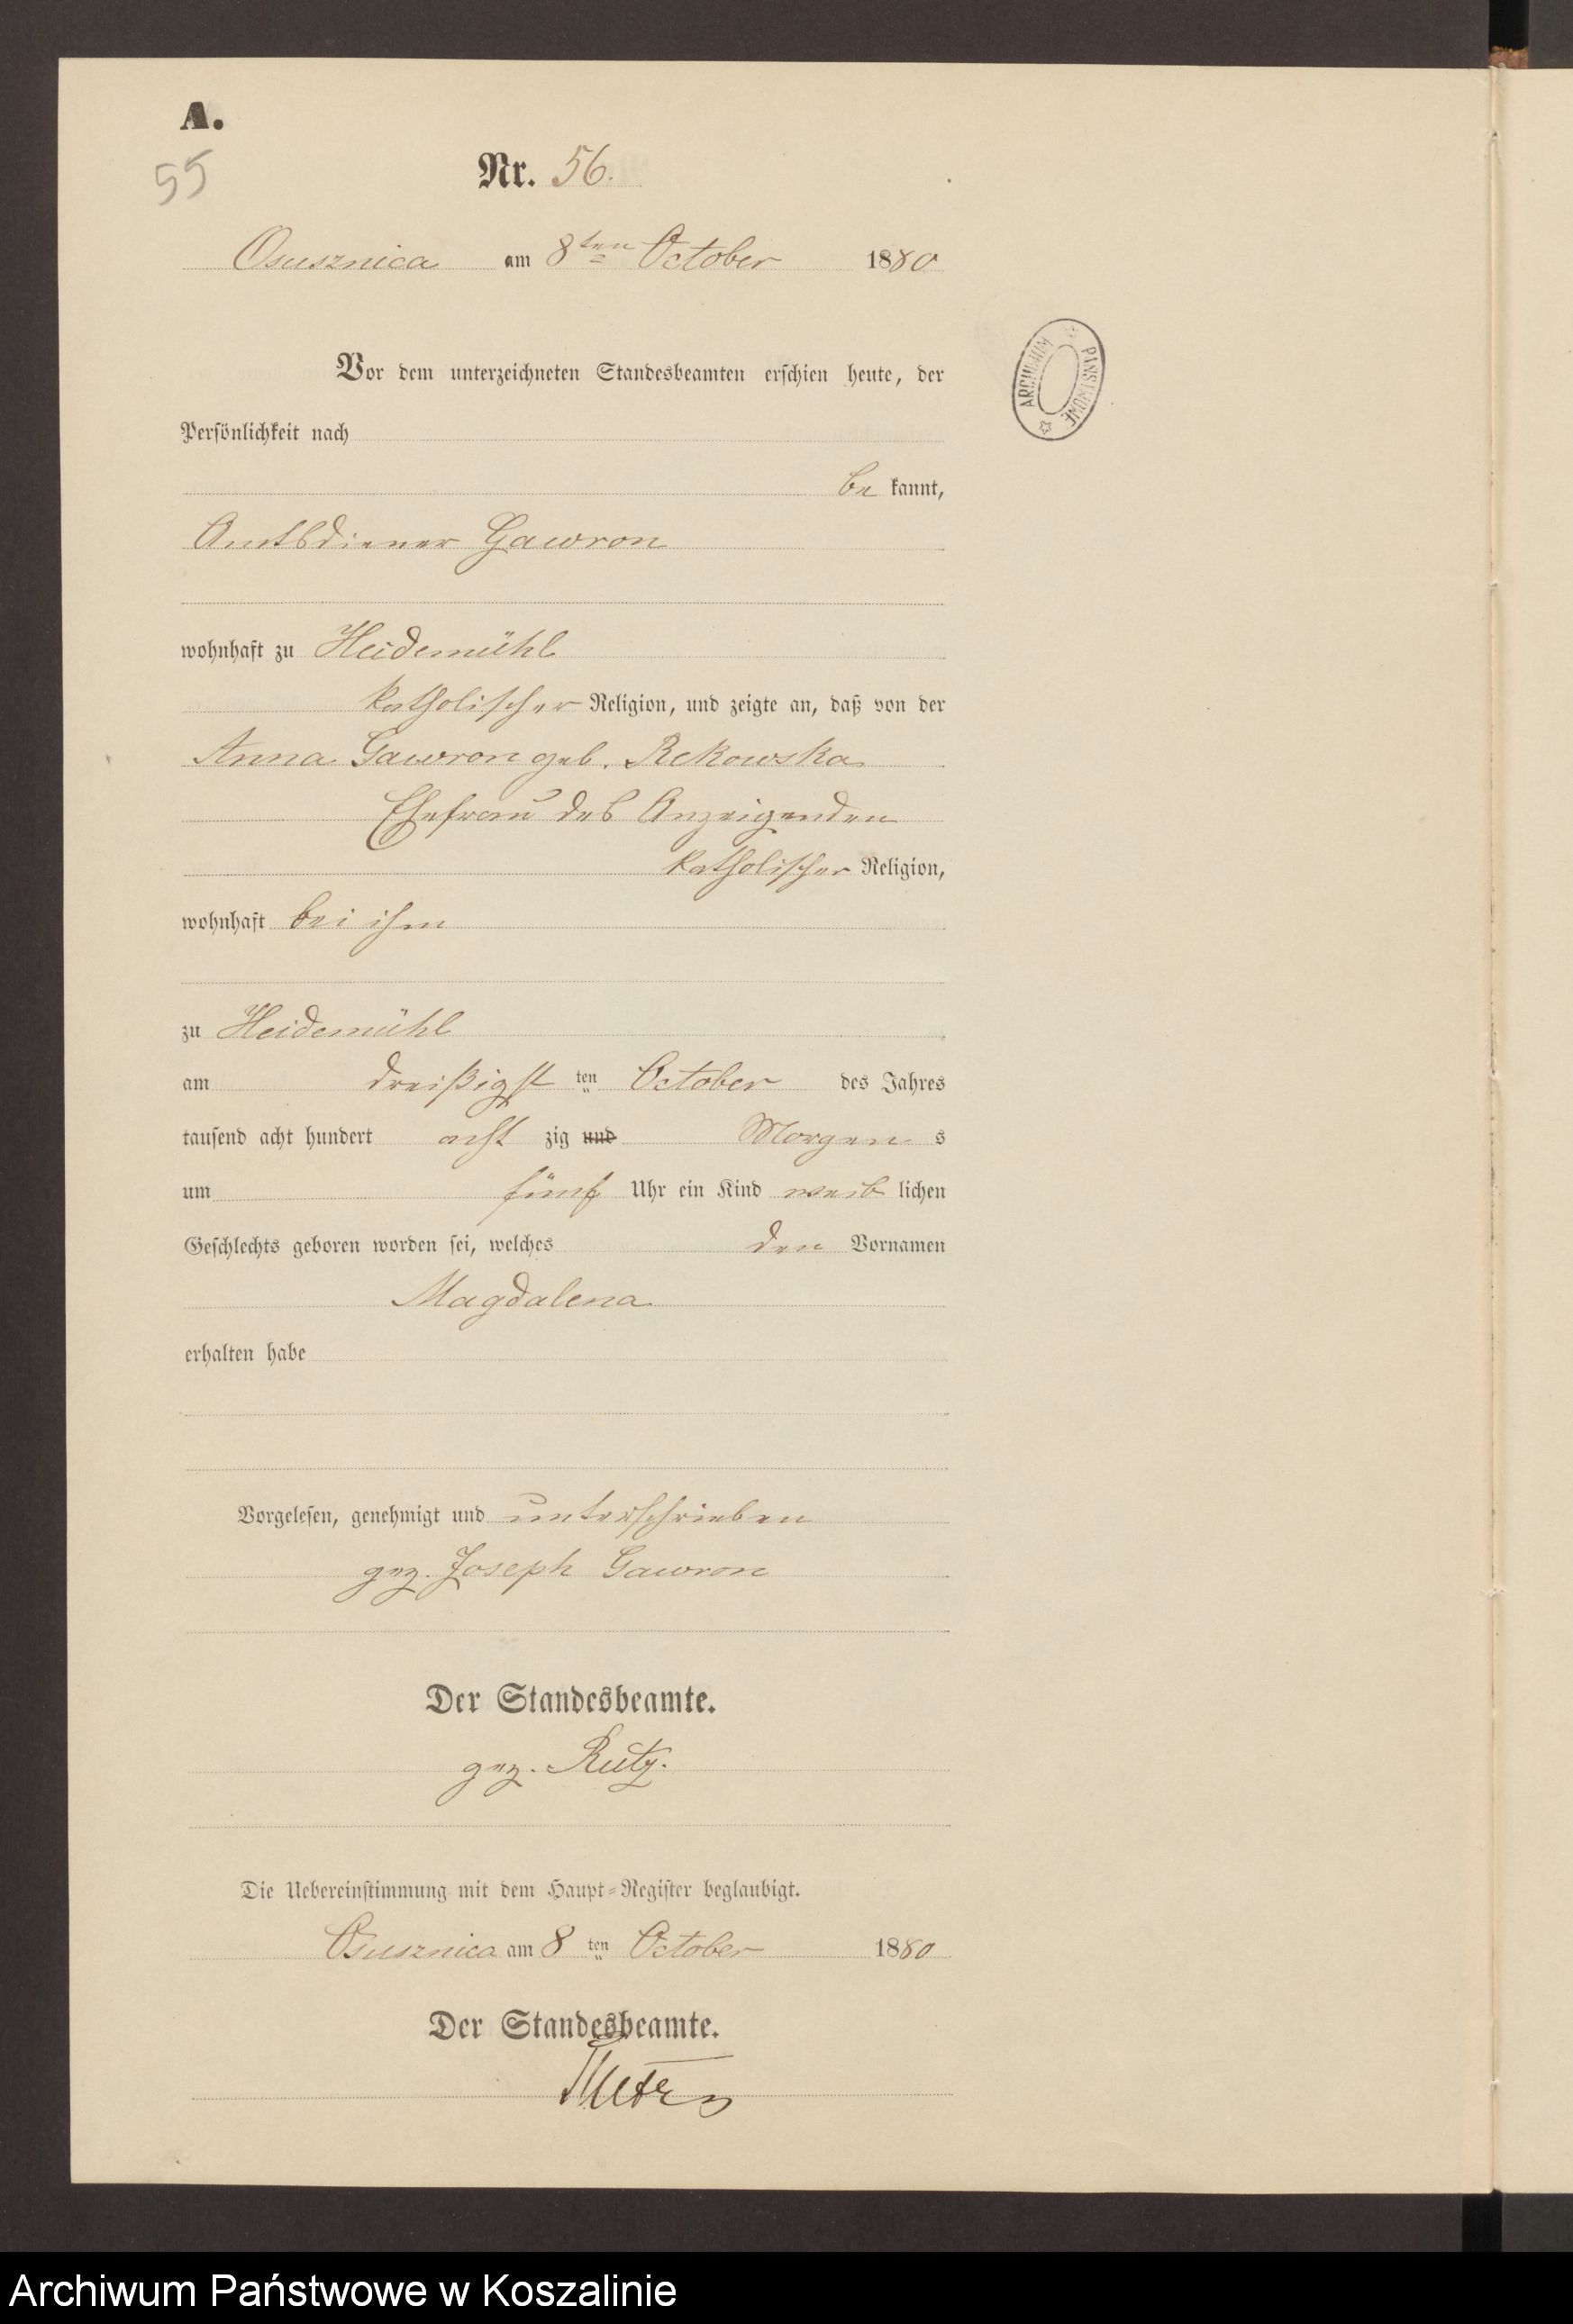 A.
55
Nr. 56.
Osusznica am 8ten October 1880
Vor dem unterzeichneten Standesbeamten erschien heute, der
Persönlichkeit nach
be kannt,
Amtsdiener Gawron
wohnhaft zu Heidemühl
katholischer Religion, und zeigte an, daß von der
Anna Gawron geb. Rekowska
Ehefrau des Anzeigenden
katholischer Religion,
wohnhaft bei ihm
zu Heidemühl
am dreißigst ten October des Jahres
tausend acht hundert acht zig und Morgen s
um fünf Uhr ein Kind weib lichen
Geschlechts geboren worden sei, welches den Vornamen
Magdalena
erhalten habe
Vorgelesen, genehmigt und unterschrieben
gez. Joseph Gawron
Der Standesbeamte.
gez. Rutz.
Die Uebereinstimmung mit dem Haupt-Register beglaubigt.
Osusznica am 8 ten October 1880
Der Standesbeamte.
Rutz
ARCHIWUM PAŃSTWOWE
Archiwum Państwowe w Koszalinie